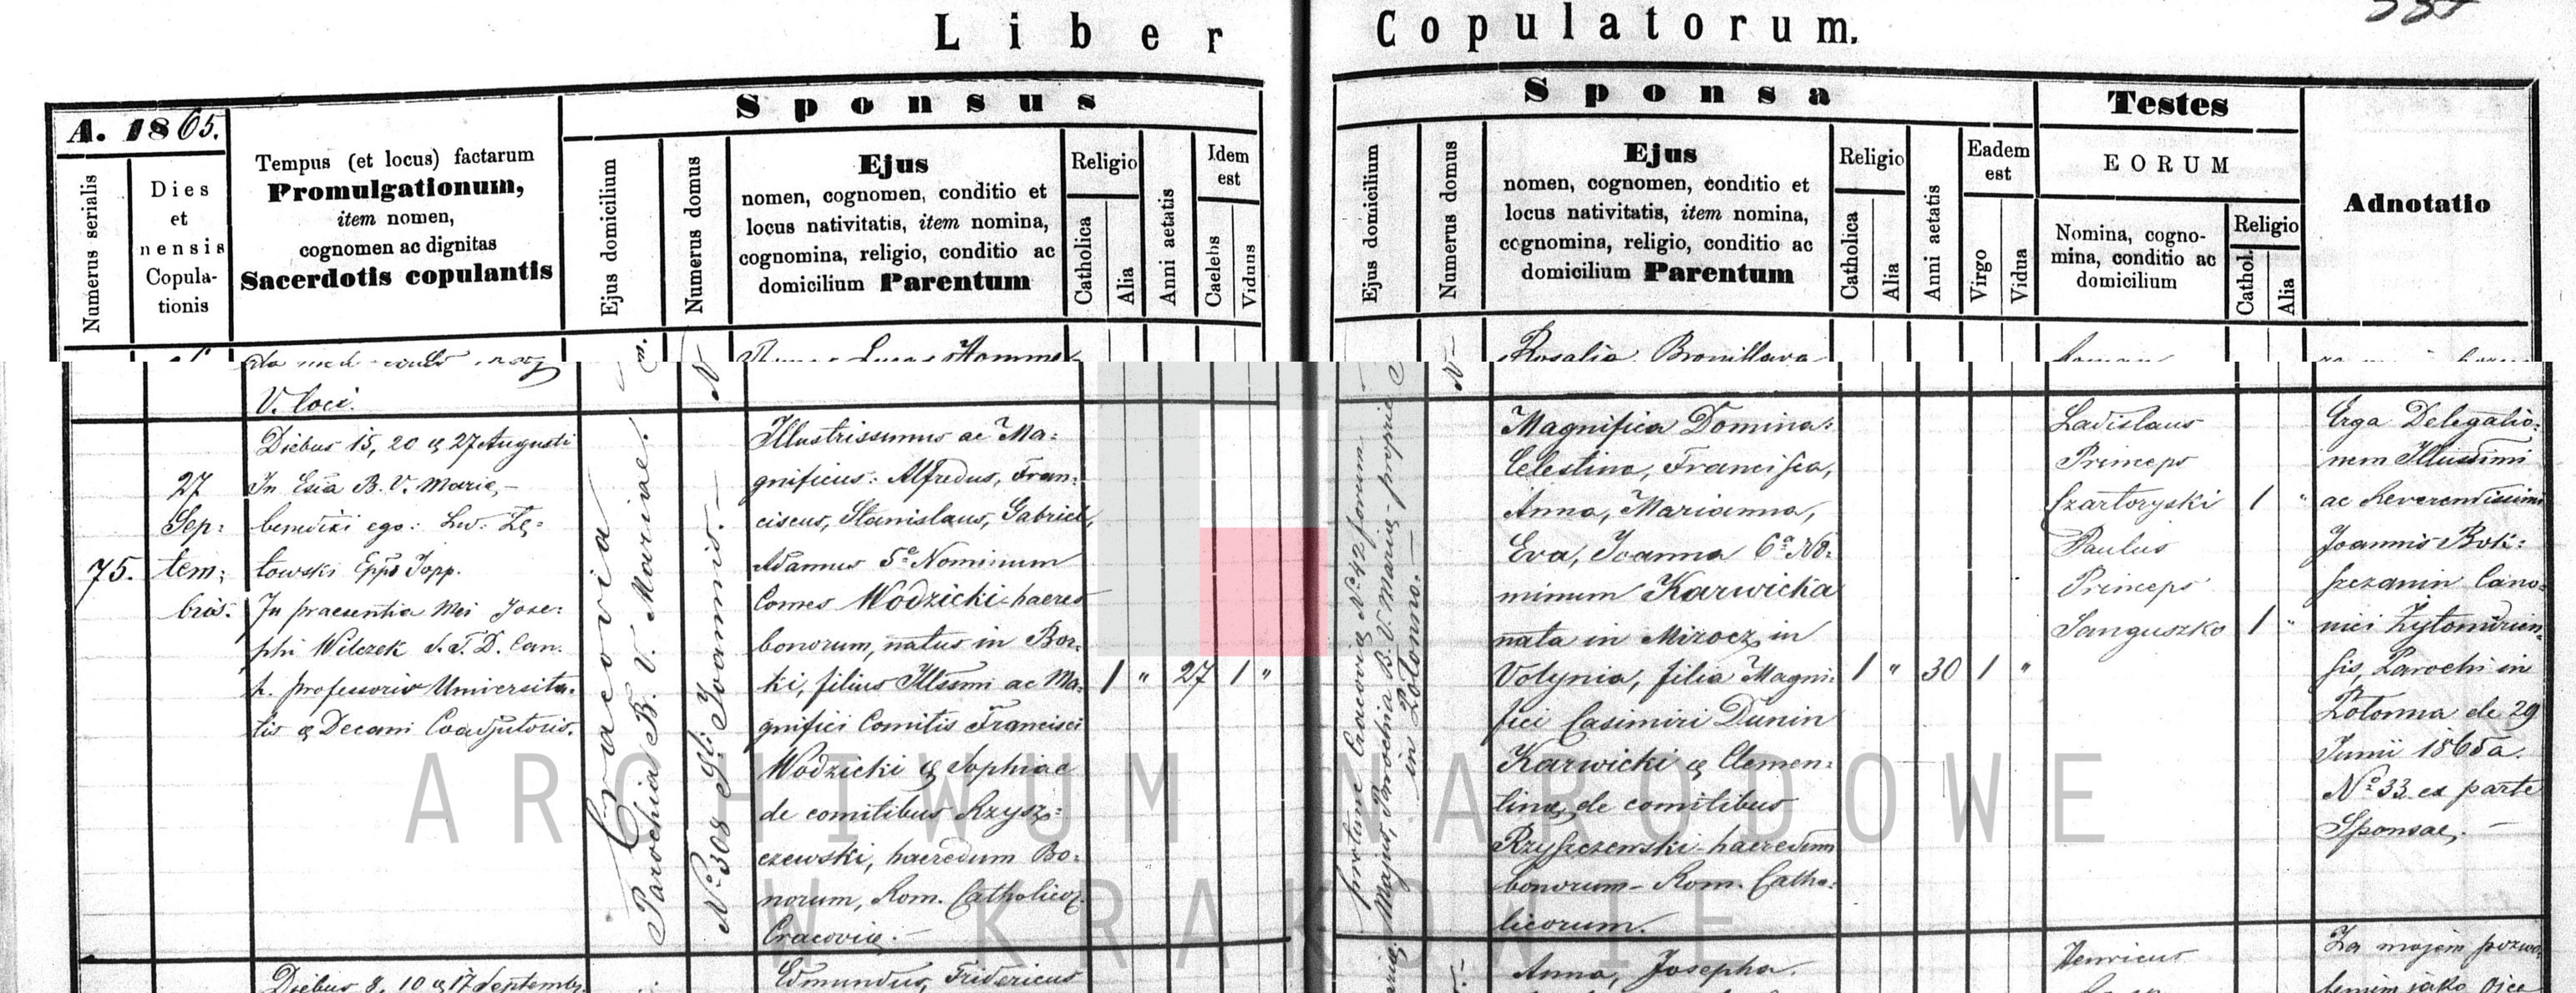 Liber Copulatorum.
A. 1865.
Numerus serialis
Dies
et
nensis
Copula-
tionis
Tempus (et locus) factarum
Promulgationum,
item nomen,
cognomen ac dignitas
Sacerdotis copulantis
Sponsus
Ejus domicilium
Numerus domus
Ejus
nomen, cognomen, conditio et
locus nativitatis, item nomina,
cognomina, religio, conditio ac
domicilium Parentum
Religio
Catholica
Alia
Anni aetatis
Idem
est
Caelebs
Viduus
Sponsa
Ejus domicilium
Numerus domus
Ejus
nomen, cognomen, conditio et
locus nativitatis, item nomina,
cognomina, religio, conditio ac
domicilium Parentum
Religio
Catholica
Alia
Anni aetatis
Eadem
est
Virgo
Vidua
Testes
EORUM
Nomina, cogno-
mina, conditio ac
domicilium
Religio
Cathol.
Alia
Adnotatio
Rosalia
V. loci.
75.
27
Sep:
tem:
bris.
Diebus 15, 20 & 27 Augusti
In Esia B. V. Mariae,-
benedixi ego: Lud: Łę:
towski Epps Jopp.
In praesentia Mei Jose:
phi Wilczek S. T. D. Can.
h. professoris Universita:
tis & Decani Coadjutoris.
Cracovia
Parochia B. V. Mariae.
N. 308 St. Joannis.-
Illustrissimus ac Ma:
gnificus: Alfredus, Fran:
ciscus, Stanislaus, Gabriel,
Adamus 5a Nominum
Comes Wodzicki haeres
bonorum, natus in Bor:
ki, filius Illssmi ac Ma:
gnifici Comitis Francisci
Wodzicki & Sophiae
de comitibus Rzysz:
czewski, haeredum Bo:
norum, Rom. Catholicor.
Cracoviae.-
1 " 27 1 "
in Połonno.-
Magnifica Domina:
Celestina, Francisca,
Anna, Marianna,
Eva, Joanna 6a No:
minum Karwicka
nata in Mirocz in
Volynia, filia Magni:
fici Casimiri Dunin
Karwicki & Clemen:
tinae de comitibus
Rzyszczewski haeredum
bonorum - Rom. Catho:
licorum.
1 " 30 1 "
Ladislaus
Princeps
Czartoryski 1 "
Paulus
Princeps
Sanguszko 1 "
Erga Delegatio:
nem Illussimi
ac Reverendissimi
Joannis
szczanin Cano:
nici Zytomirien:
sis, Parochi in
Połonna de 29
Junii 1865 a.
No 33 ex parte
Sponsae.-
Diebus 8, 10 & 17 Septembr
Edmundus, Fridericus
Anna, Josepha.
Henricus
Za mojem pozwo:
leniem jako Ojce
ARCHIWUM NARODOWE
W KRAKOWIE